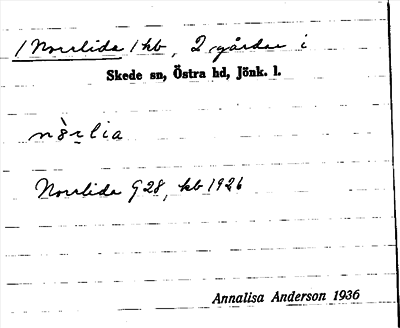 / Norrlida / kb, 2 gårdar i
Skede sn, Östra hd, Jönk. l.
Norrlida G 28, kb 1926
Annalisa Anderson 1936